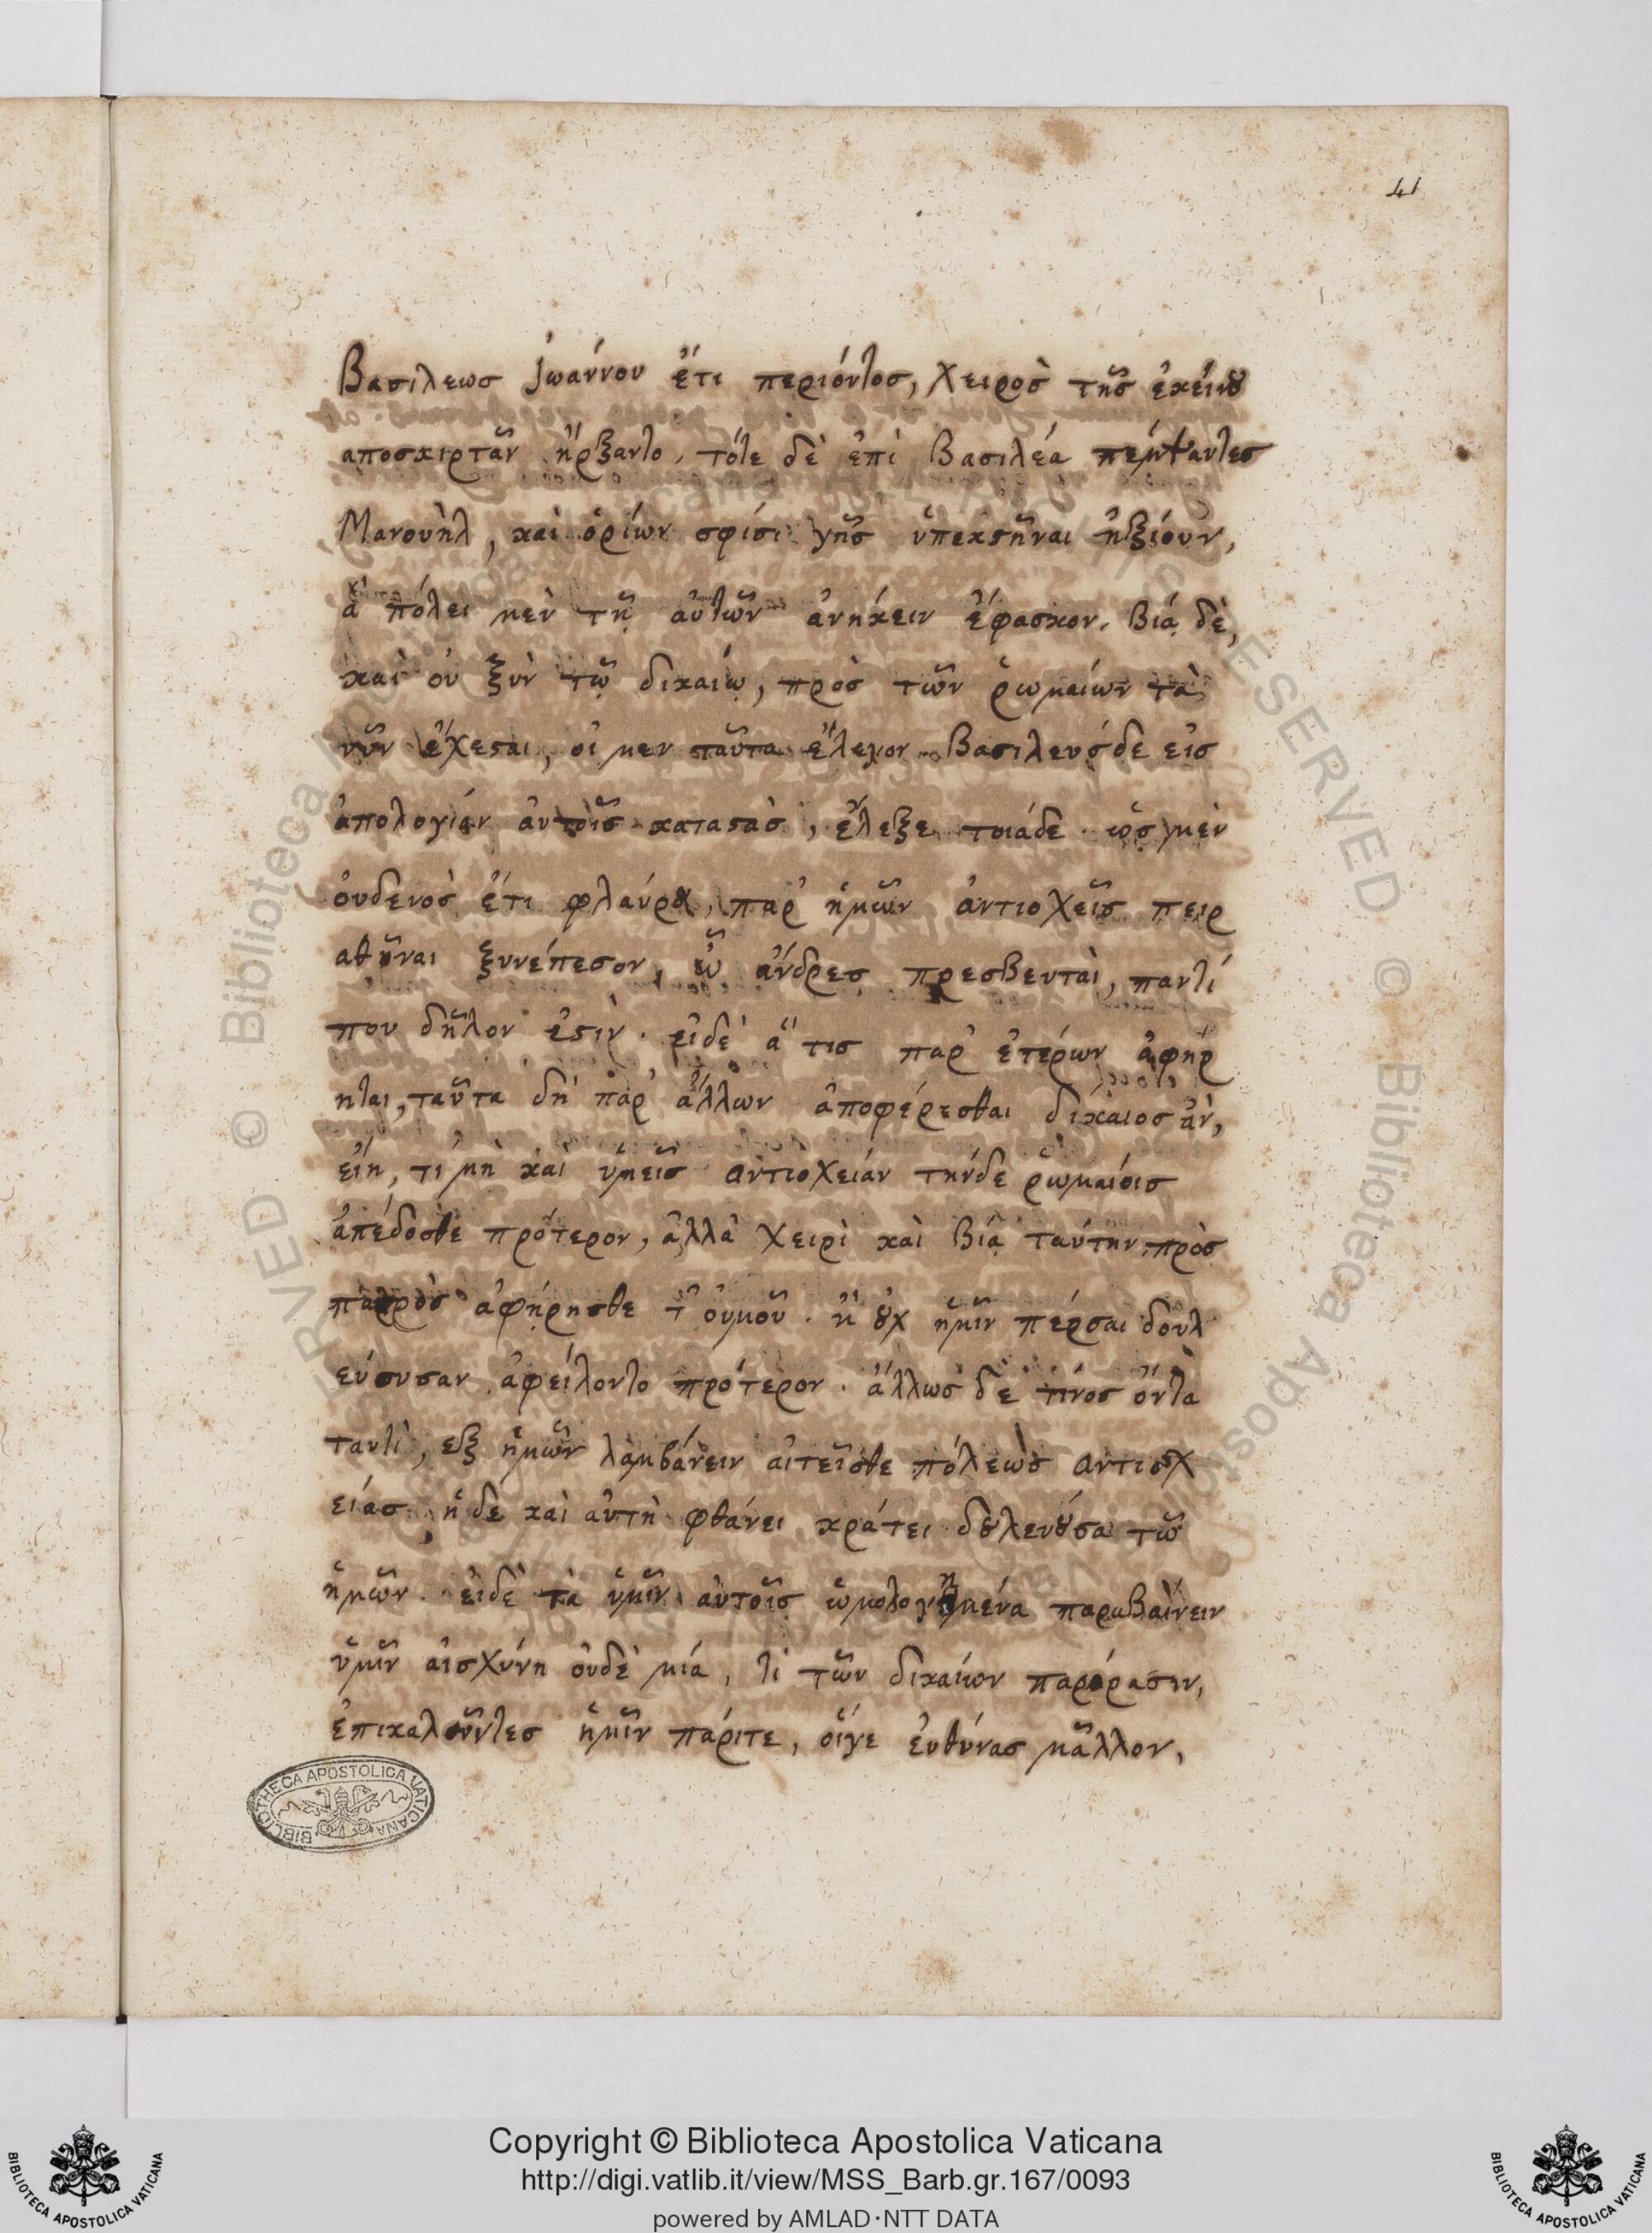 41
Βασιλεωσ ἰωάννου ἔτι περιόντος, χειρὸσ τῆς ἐκείνȣ
αποσκιρτᾶν ἤρξαντο, τότε δὲ ἐπὶ Βασιλέα πέμψαντεσ
Μανουὴλ, καὶ ὁρίων σφίσι γῆς ὑπεκϛῆναι ἠξίουν,
ἃ πόλει μὲν τῇ αὐτῶν ἀνήκειν ἔφασκον. βίᾳ δὲ,
καὶ οὐ ξὺν τῷ δικαίῳ, πρὸσ τῶν ῥωμαίων τὰ
νῦν ἔχεϛαι, οἱ μεν ταῦτα ἔλεγον. Βασιλευσ δε εἰσ
ἀπολογίαν ἀυτοῖσ καταϛὰσ, ἔλεξε τοιάδε. ὡς μὲν
ὀυδενὸσ ἔτι φλαύρȣ, παρ' ἡμῶν ἀντιοχεῖς πειρ
αθῆναι ξυνέπεσον, ὦ ἄνδρες πρεσβευταὶ, παντί
που δῆλον ἐϛιν. εἰδὲ ἅ τισ παρ' ἑτέρων ἀφήρ
ηται, ταῦτα δὴ παρ' ἄλλων ἀποφέρεσθαι δίκαιοσ ἂν,
εἴη, τί μὴ καὶ ὑμεῖσ αντιοχείαν τήνδε ῥωμαίοισ
ἀπέδοσθε πρότερον, ἀλλὰ χειρὶ καὶ βίᾳ ταύτην πρὸσ
πατρὸσ ἀφῄρησθε τ' οὐμοῦ. ἢ ȣχ ἡμῖν πέρσαι δουλ
εύουσαν ἀφείλοντο πρότερον. ἄλλωσ δὲ τίνοσ ὄντα
ταυτὶ, εξ ἡμῶν λαμβάνειν αἰτεῖσθε πόλεωσ αντιοχ
είασ, ἥδε καὶ αὐτὴ φθάνει κράτει δȣλεύȣσα τῷ
ἡμῶν. εἰδὲ τὰ ὑμῖν ἀυτοῖς ὡμολογημένα παραβαίνειν
ὑμῖν αἰσχύνη οὐδὲ μία, τί τῶν δικαίων παρόρασιν,
ἐπικαλοῦντεσ ἡμῖν πάριτε, οἵγε ἐυθύνασ μᾶλλον,
BIBLIOTHECA APOSTOLICA VATICANA
Copyright © Biblioteca Apostolica Vaticana
http://digi.vatlib.it/view/MSS_Barb.gr.167/0093
powered by AMLAD·NTT DATA
BIBLIOTECA APOSTOLICA VATICANA
BIBLIOTECA APOSTOLICA VATICANA